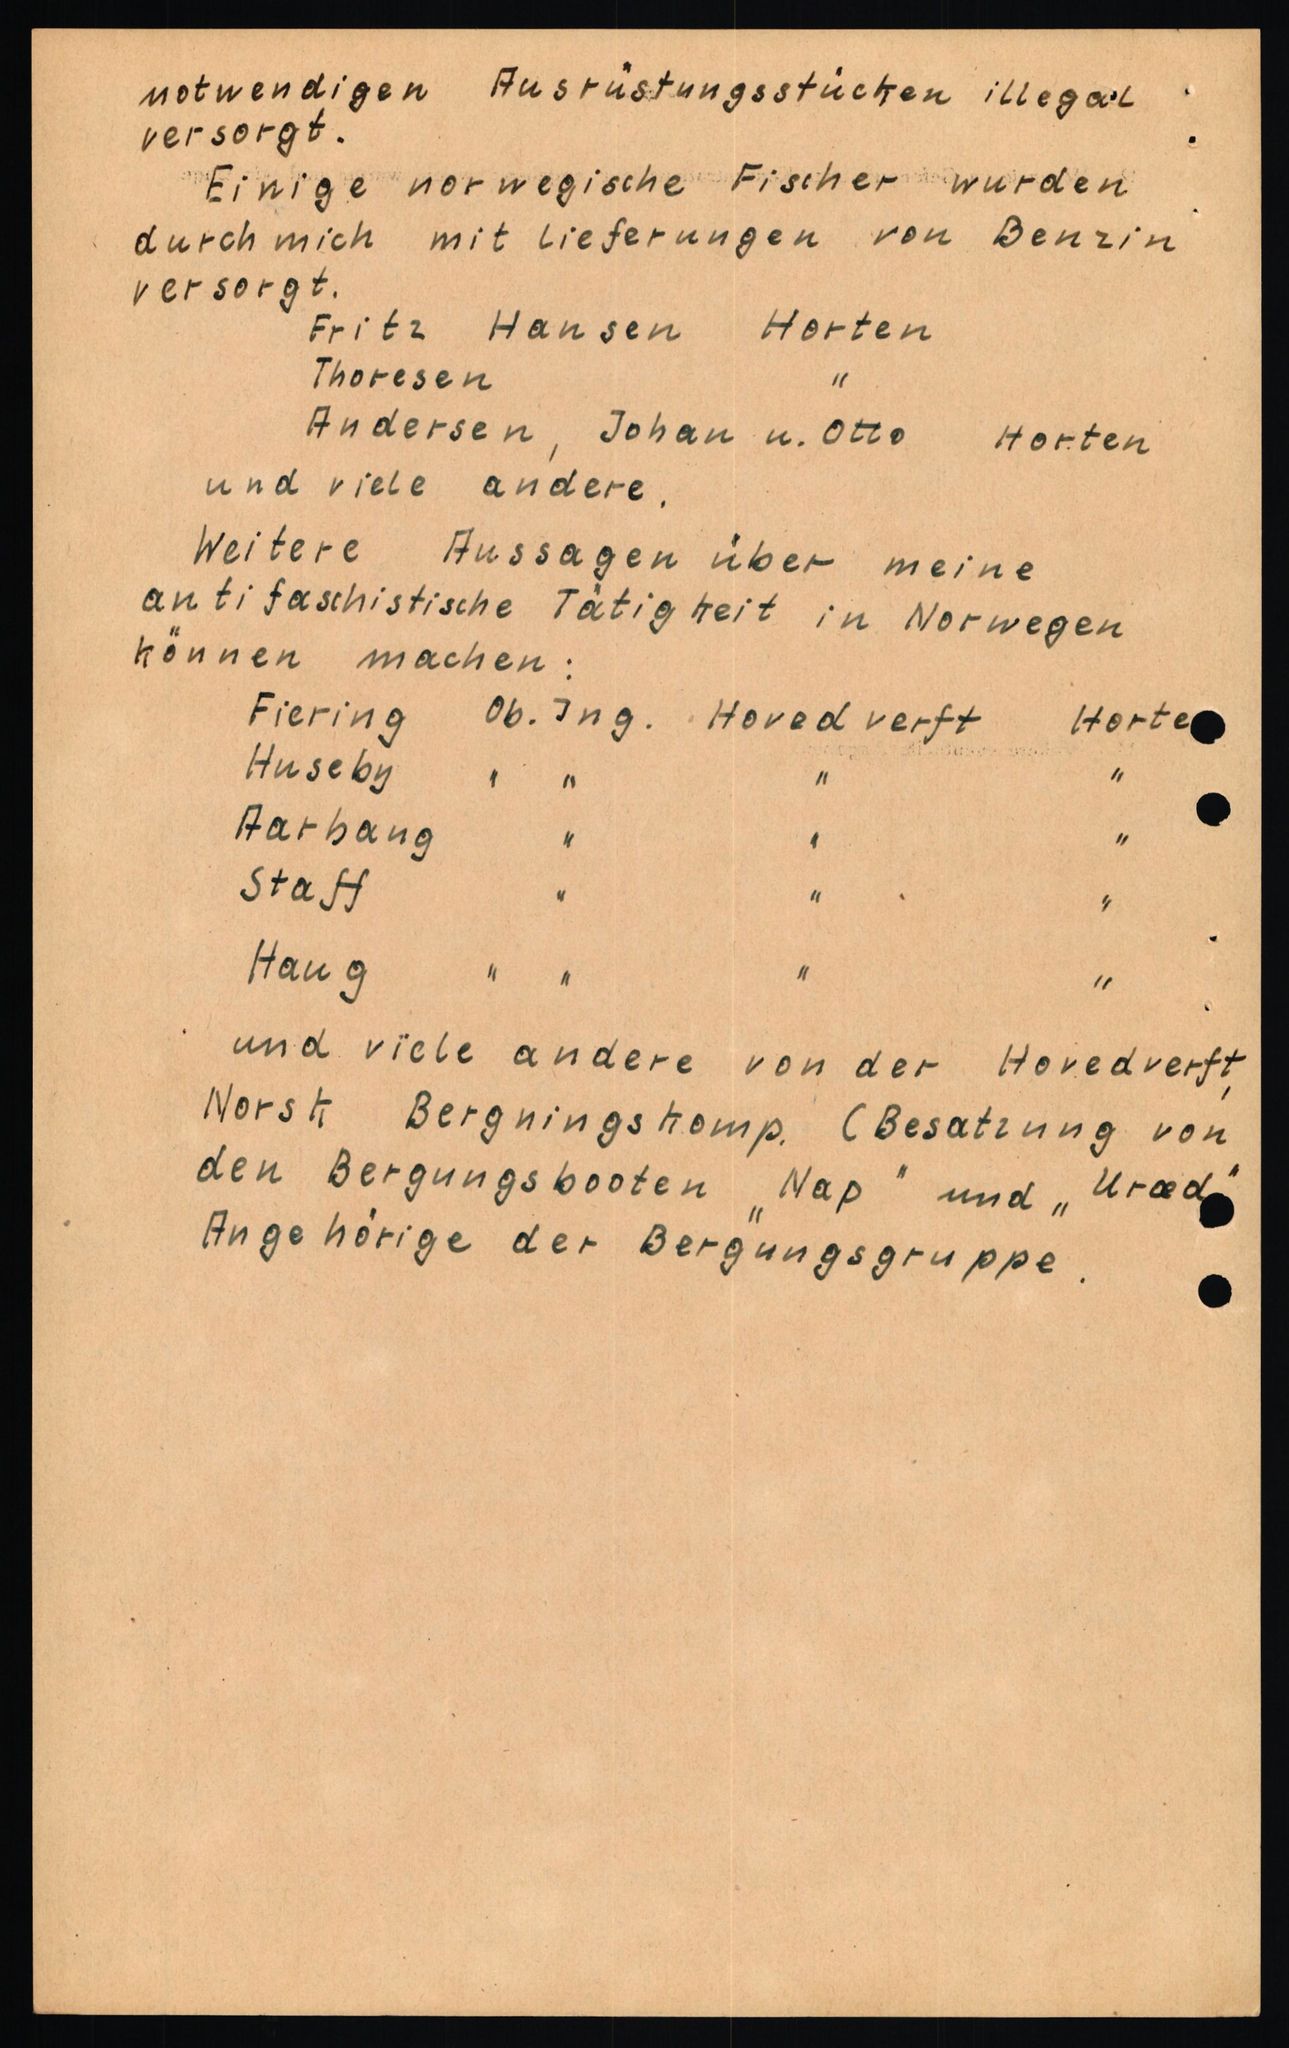 notwendigen Ausrüstungsstücken illegal
versorgt.
Einige norwegische Fischer wurden
durch mich mit lieferungen von Benzin
versorgt.
Fritz Hansen Horten
Thoresen "
Andersen, Johan u. Otto Horten
und viele andere.
Weitere Aussagen über meine
antifaschistische Tätigkeit in Norwegen
können machen:
Fiering Ob. Ing. Hovedverft Horte
Huseby " " " "
Aarhaug " " "
Staff " " "
Haug " " " "
und viele andere von der Hovedverft,
Norsk Bergningskomp. (Besatzung von
den Bergungsbooten „Nap" und „Uræd"
Angehörige der Bergungsgruppe.